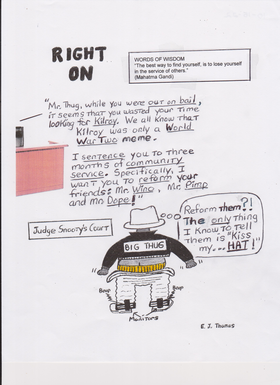 RIGHT
ON
WORDS OF WISDOM
"The best way to find yourself, is to lose yourself
in the service of others."
(Mahatma Gandi)
"Mr. Thug, while you were out on bail,
it seems that you wasted your time
looking for Kilroy. We all know that
Kilroy was only a World
War Two meme.
I sentence you to three
months of community
service. Specifically, I
want you to reform your
friends: Mr. Wino, Mr. Pimp
and Mr. Dope!"
Judge Snooty's Court
Reform them?!
The only thing
I Know to Tell
Them is "Kiss
my.... HAT!"
BIG THUG
Beep
Beep
Monitors
E. J. Thomas